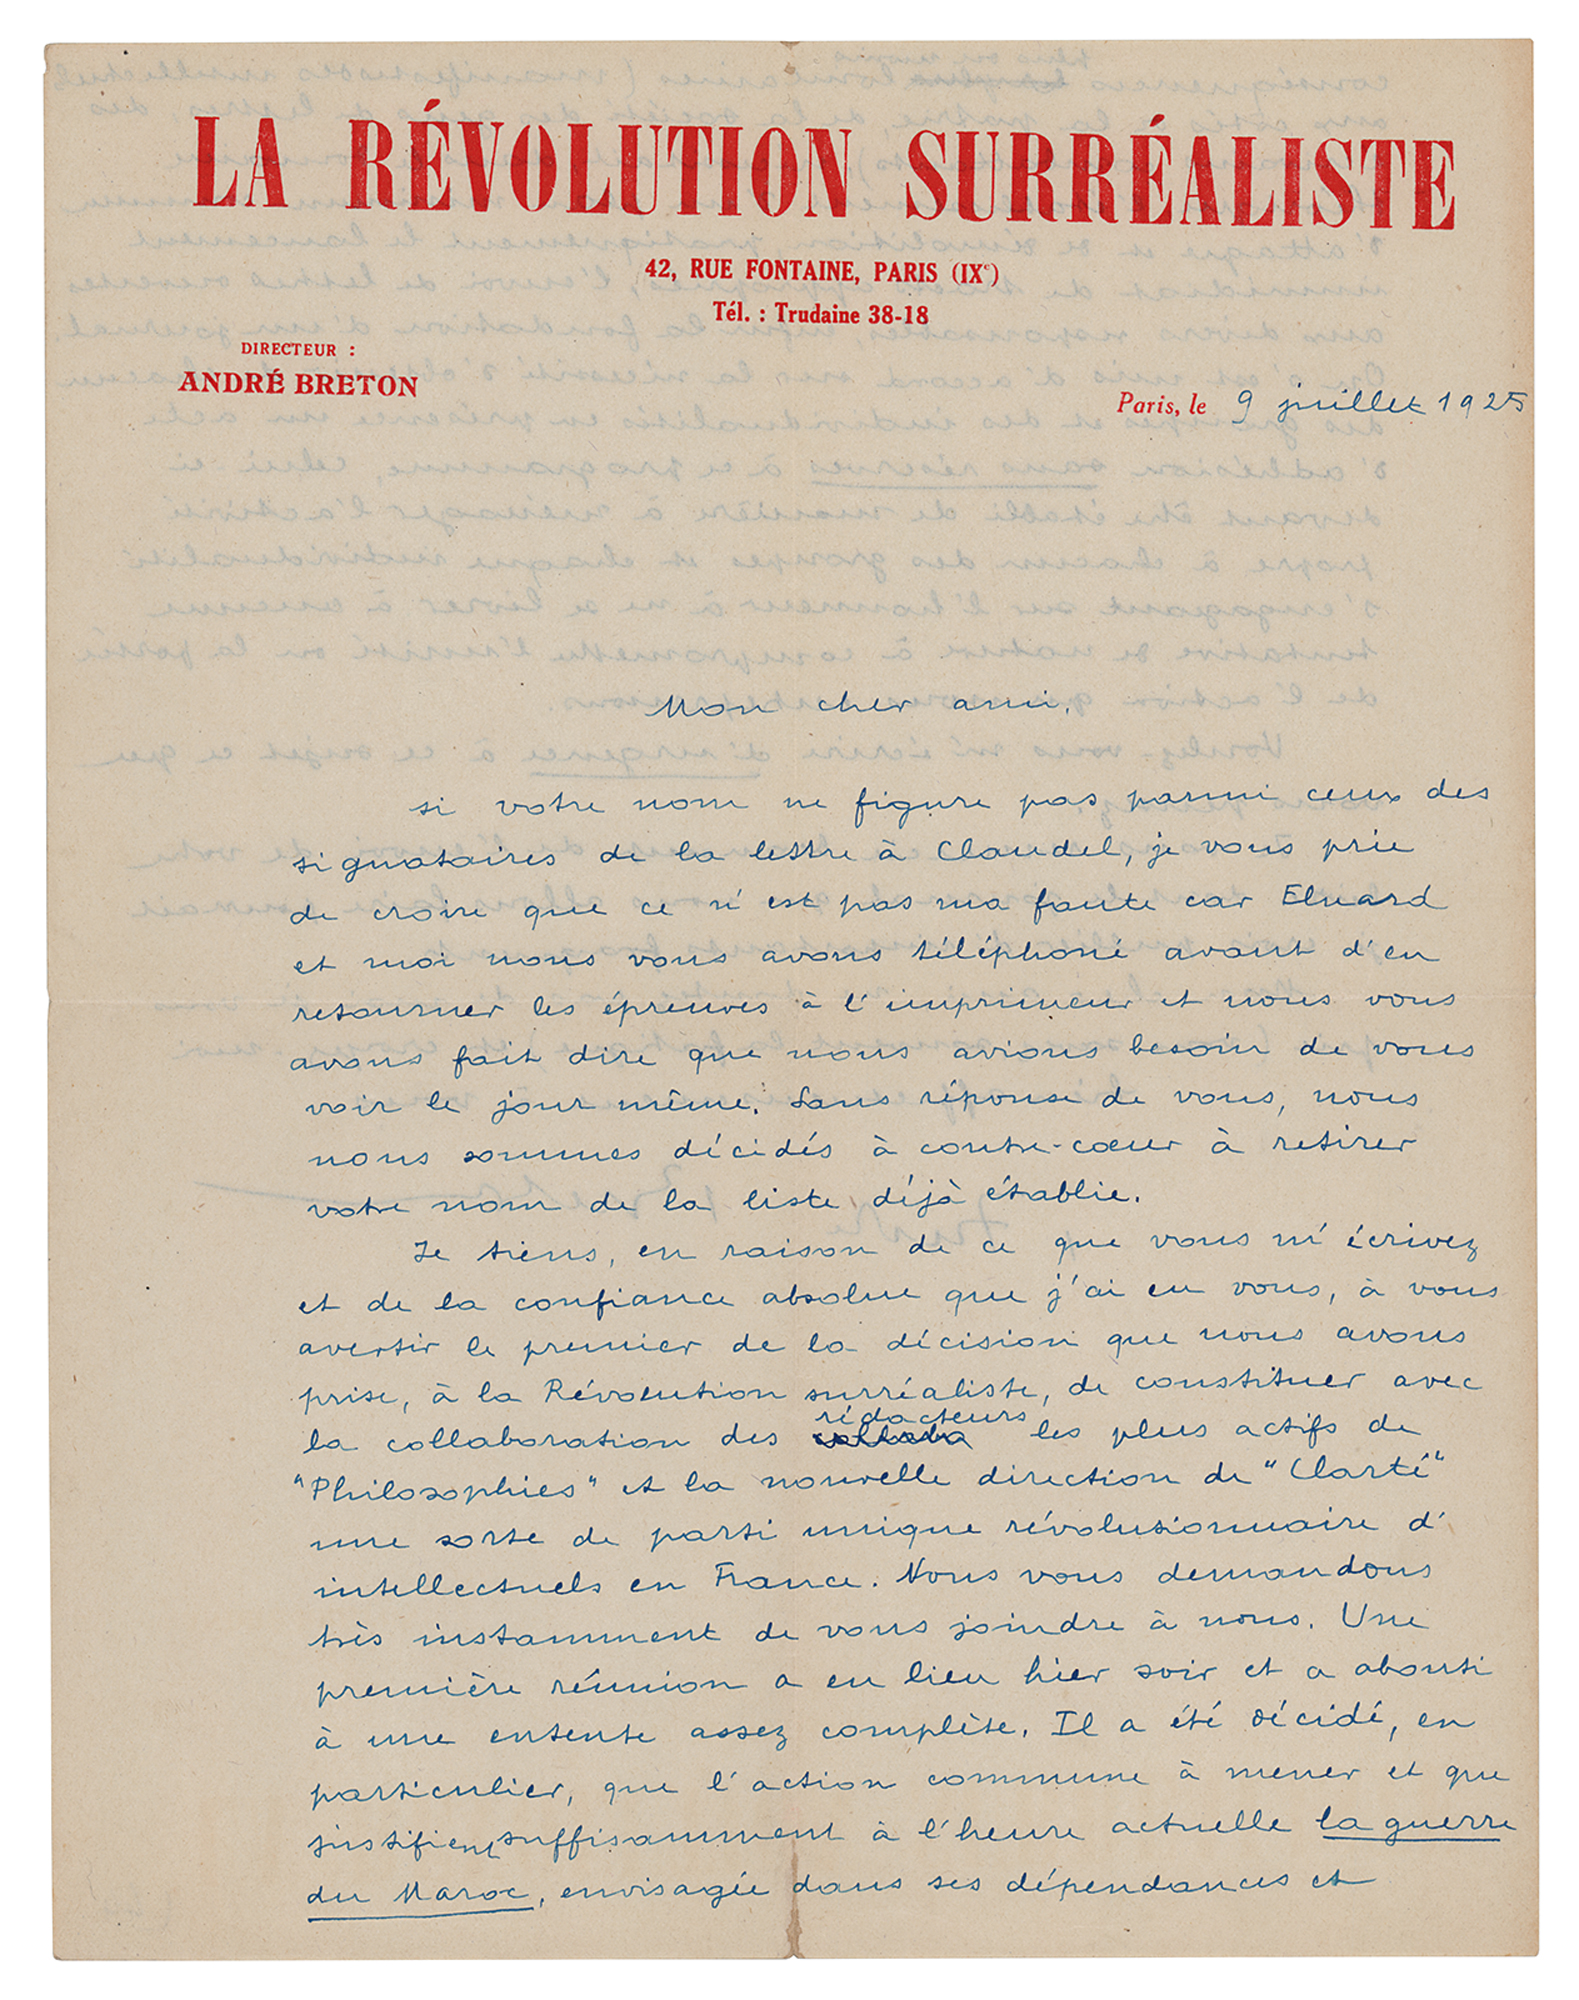 LA RÉVOLUTION SURRÉALISTE
42, RUE FONTAINE, PARIS (IXe)
Tél. : Trudaine 38-18
DIRECTEUR :
ANDRÉ BRETON
Paris, le 9 juillet 1925
Mon cher ami,
si votre nom ne figure pas parmi ceux des
signataires de la lettre à Claudel, je vous prie
de croire que ce n'est pas ma faute car Eluard
et moi nous vous avons téléphoné avant d'en
retourner les épreuves à l'imprimeur et nous vous
avons fait dire que nous avions besoin de vous
voir le jour même. Sans réponse de vous, nous
nous sommes décidés à contre-cœur à retirer
votre nom de la liste déjà établie.
Je tiens, en raison de ce que vous m'écrivez
et de la confiance absolue que j'ai en vous, à vous
avertir le premier de la décision que nous avons
prise, à la Révolution surréaliste, de constituer avec
la collaboration des rédacteurs les plus actifs de
"Philosophies" et la nouvelle direction de "Clarté"
une sorte de parti unique révolutionnaire d'
intellectuels en France. Nous vous demandons
très instamment de vous joindre à nous. Une
première réunion a eu lieu hier soir et a abouti
à une entente assez complète. Il a été décidé, en
particulier, que l'action commune à mener et que
justifient suffisamment à l'heure actuelle la guerre
du Maroc, envisagée dans ses dépendances et